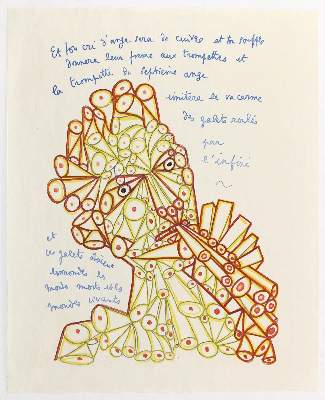 Et son cri d'ange sera de cuivre et ton souffle
donnera leur forme aux trompettes et
la trompette du septième ange
imitera le vacarme
des galets roulés
par
l'infini
et
ces galets
les
mondes morts et les
mondes vivants